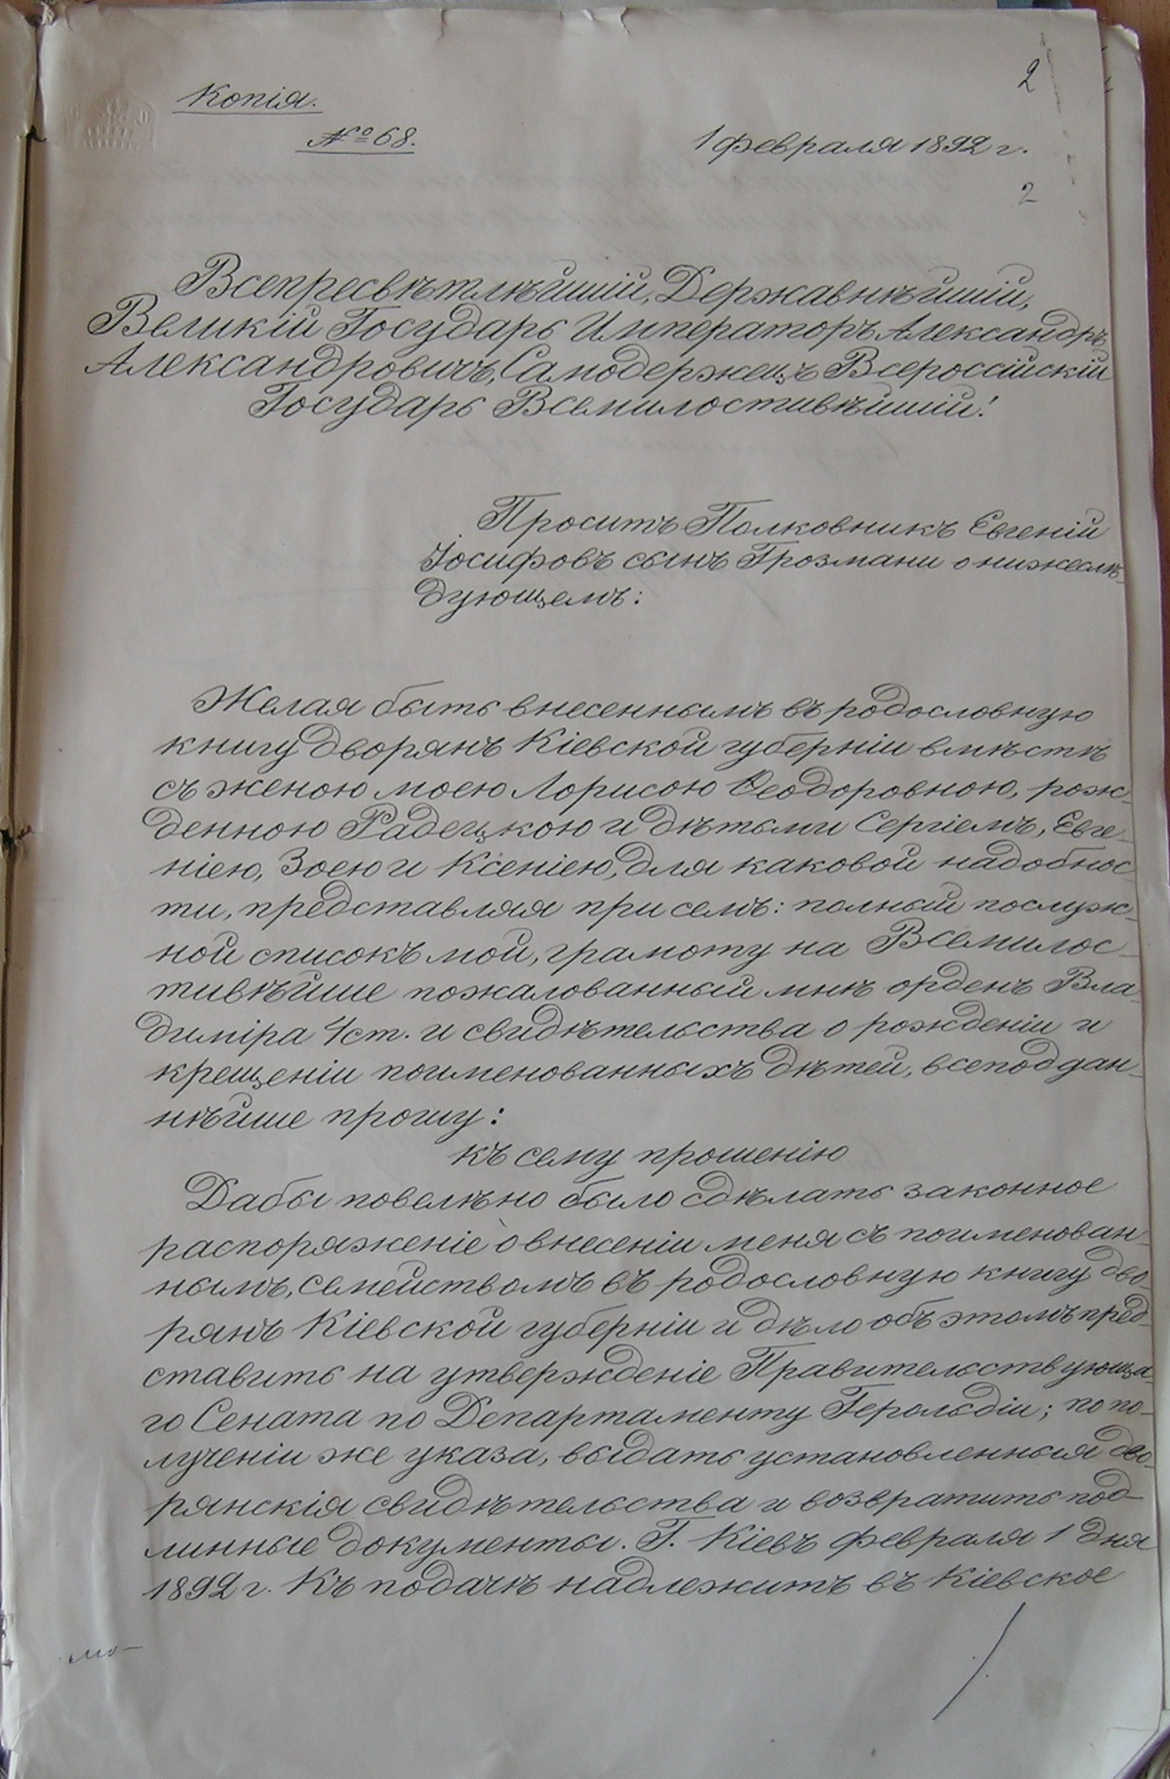 2
Копія.
№ 68.
1 февраля 1892 г.
2
Всепресвѣтлѣйшій, Державнѣйшій,
Великій Государь Императоръ Александръ
Александровичъ, Самодержецъ Всероссійскій
Государь Всемилостивѣйшій!
Проситъ Полковникъ Евгеній
Іосифовъ сынъ Грозмани о нижеслѣ-
дующемъ:
Желая быть внесеннымъ въ родословную
книгу дворянъ Кіевской губерніи вмѣстѣ
съ женою моею Лорисою Ѳеодоровною, рож-
денною Радецкою и дѣтьми Сергіемъ, Евге-
ніею, Зоею и Ксеніею, для каковой надобнос-
ти, представляя при семъ: полный послуж-
ной списокъ мой, грамоту на Всемилос-
тивѣйше пожалованный мнѣ орденъ Вла-
диміра 4 ст. и свидѣтельства о рожденіи и
крещеніи поименованныхъ дѣтей, всеподдан-
нѣйше прошу:
къ сему прошенію
Дабы повелѣно было сдѣлать законное
распоряженіе о внесеніи меня съ поименован-
нымъ, семействомъ въ родословную книгу дво-
рянъ Кіевской губерніи и дѣло объ этомъ пред-
ставить на утвержденіе Правительствующа-
го Сената по Департаменту Герольдіи; по по-
лученіи же указа, выдать установленныя дво-
рянскія свидѣтельства и возвратить под-
линные документы. Г. Кіевъ февраля 1 дня
1892 г. Къ подачѣ надлежитъ въ Кіевское